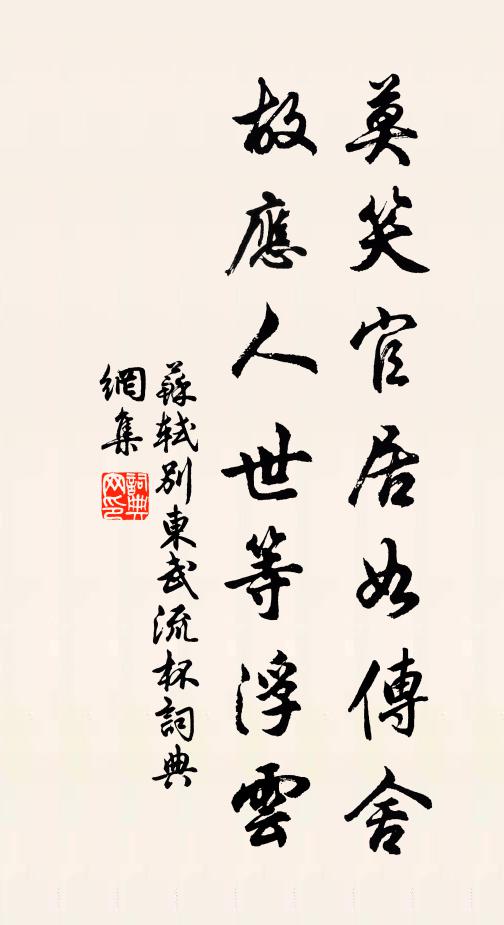 莫笑官居如傳舍
故應人世等浮雲
蘇軾別東武流杯詞典
網集
詞典
网印